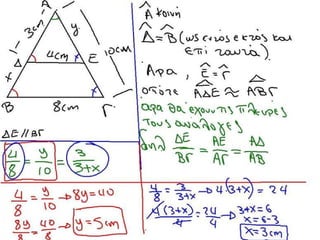 A
3cm
y
10cm
Δ
4cm
E
x
B
8cm
Γ
ΔE//BΓ
4/8 = y/10 = 3/(3+x)
4/8 = y/10 → 8y=40
8y/8 = 40/8 → y=5cm
Â κοινή
Δ̂ = B̂ (ως εντός εκτός και
επί ταυτά).
Άρα, Ê = Γ̂
οπότε ΑΔ̂Ε ≈ ΑΒ̂Γ
άρα θα έχουν τις πλευρες
τους αναλογες
δηλ ΔE/BΓ = AE/AΓ = AΔ/AB
4/8 = 3/(3+x) → 4(3+x) = 24
4(3+x)/4 = 24/4 → 3+x=6
x=6-3
x=3cm